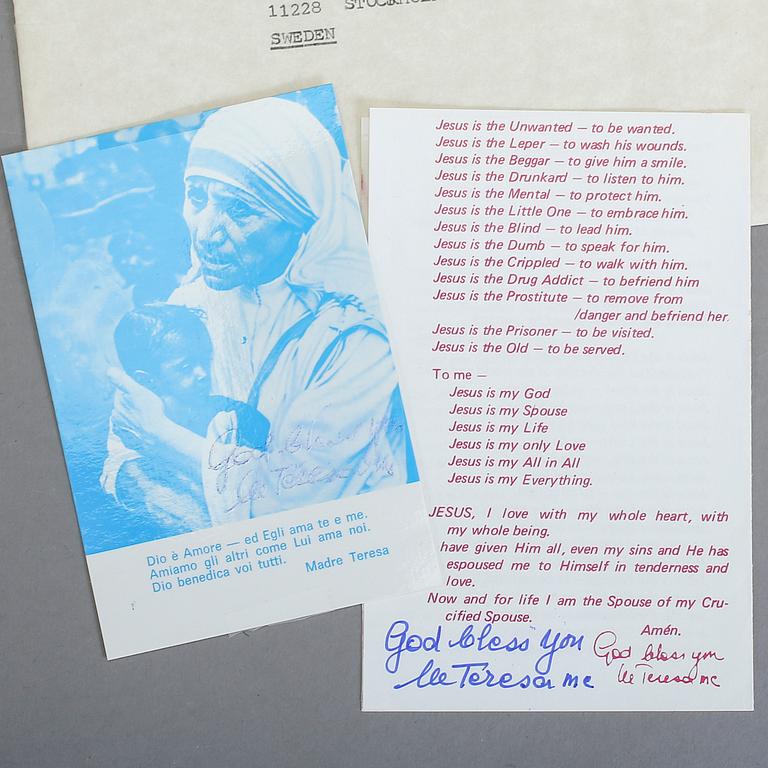 11228 STOCKHOLM
SWEDEN
God bless you
lle Teresa mc
Dio è Amore — ed Egli ama te e me.
Amiamo gli altri come Lui ama noi.
Dio benedica voi tutti.
Madre Teresa
Jesus is the Unwanted — to be wanted.
Jesus is the Leper — to wash his wounds.
Jesus is the Beggar — to give him a smile.
Jesus is the Drunkard — to listen to him.
Jesus is the Mental — to protect him.
Jesus is the Little One — to embrace him.
Jesus is the Blind — to lead him.
Jesus is the Dumb — to speak for him.
Jesus is the Crippled — to walk with him.
Jesus is the Drug Addict — to befriend him
Jesus is the Prostitute — to remove from
/danger and befriend her.
Jesus is the Prisoner — to be visited.
Jesus is the Old — to be served.
To me —
Jesus is my God
Jesus is my Spouse
Jesus is my Life
Jesus is my only Love
Jesus is my All in All
Jesus is my Everything.
JESUS, I love with my whole heart, with
my whole being.
have given Him all, even my sins and He has
espoused me to Himself in tenderness and
love.
Now and for life I am the Spouse of my Cru-
cified Spouse.
Amén.
God bless you
lle Teresa mc
God bless you
lle Teresa mc